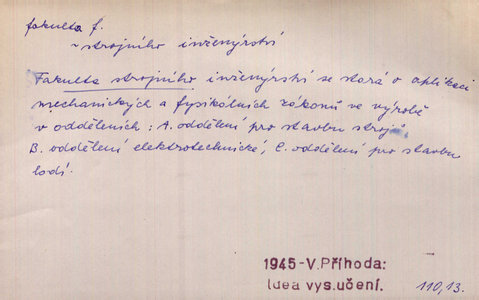 fakulta f.
~ strojního inženýrství
Fakulta strojního inženýrství se stará o aplikaci
mechanických a fysikálních zákonů ve výrobě
v odděleních: A. oddělení pro stavbu strojů
B. oddělení elektrotechnické, C. oddělení pro stavbu
lodí.
1945-V.Příhoda:
Idea vys.učení.
110,13.